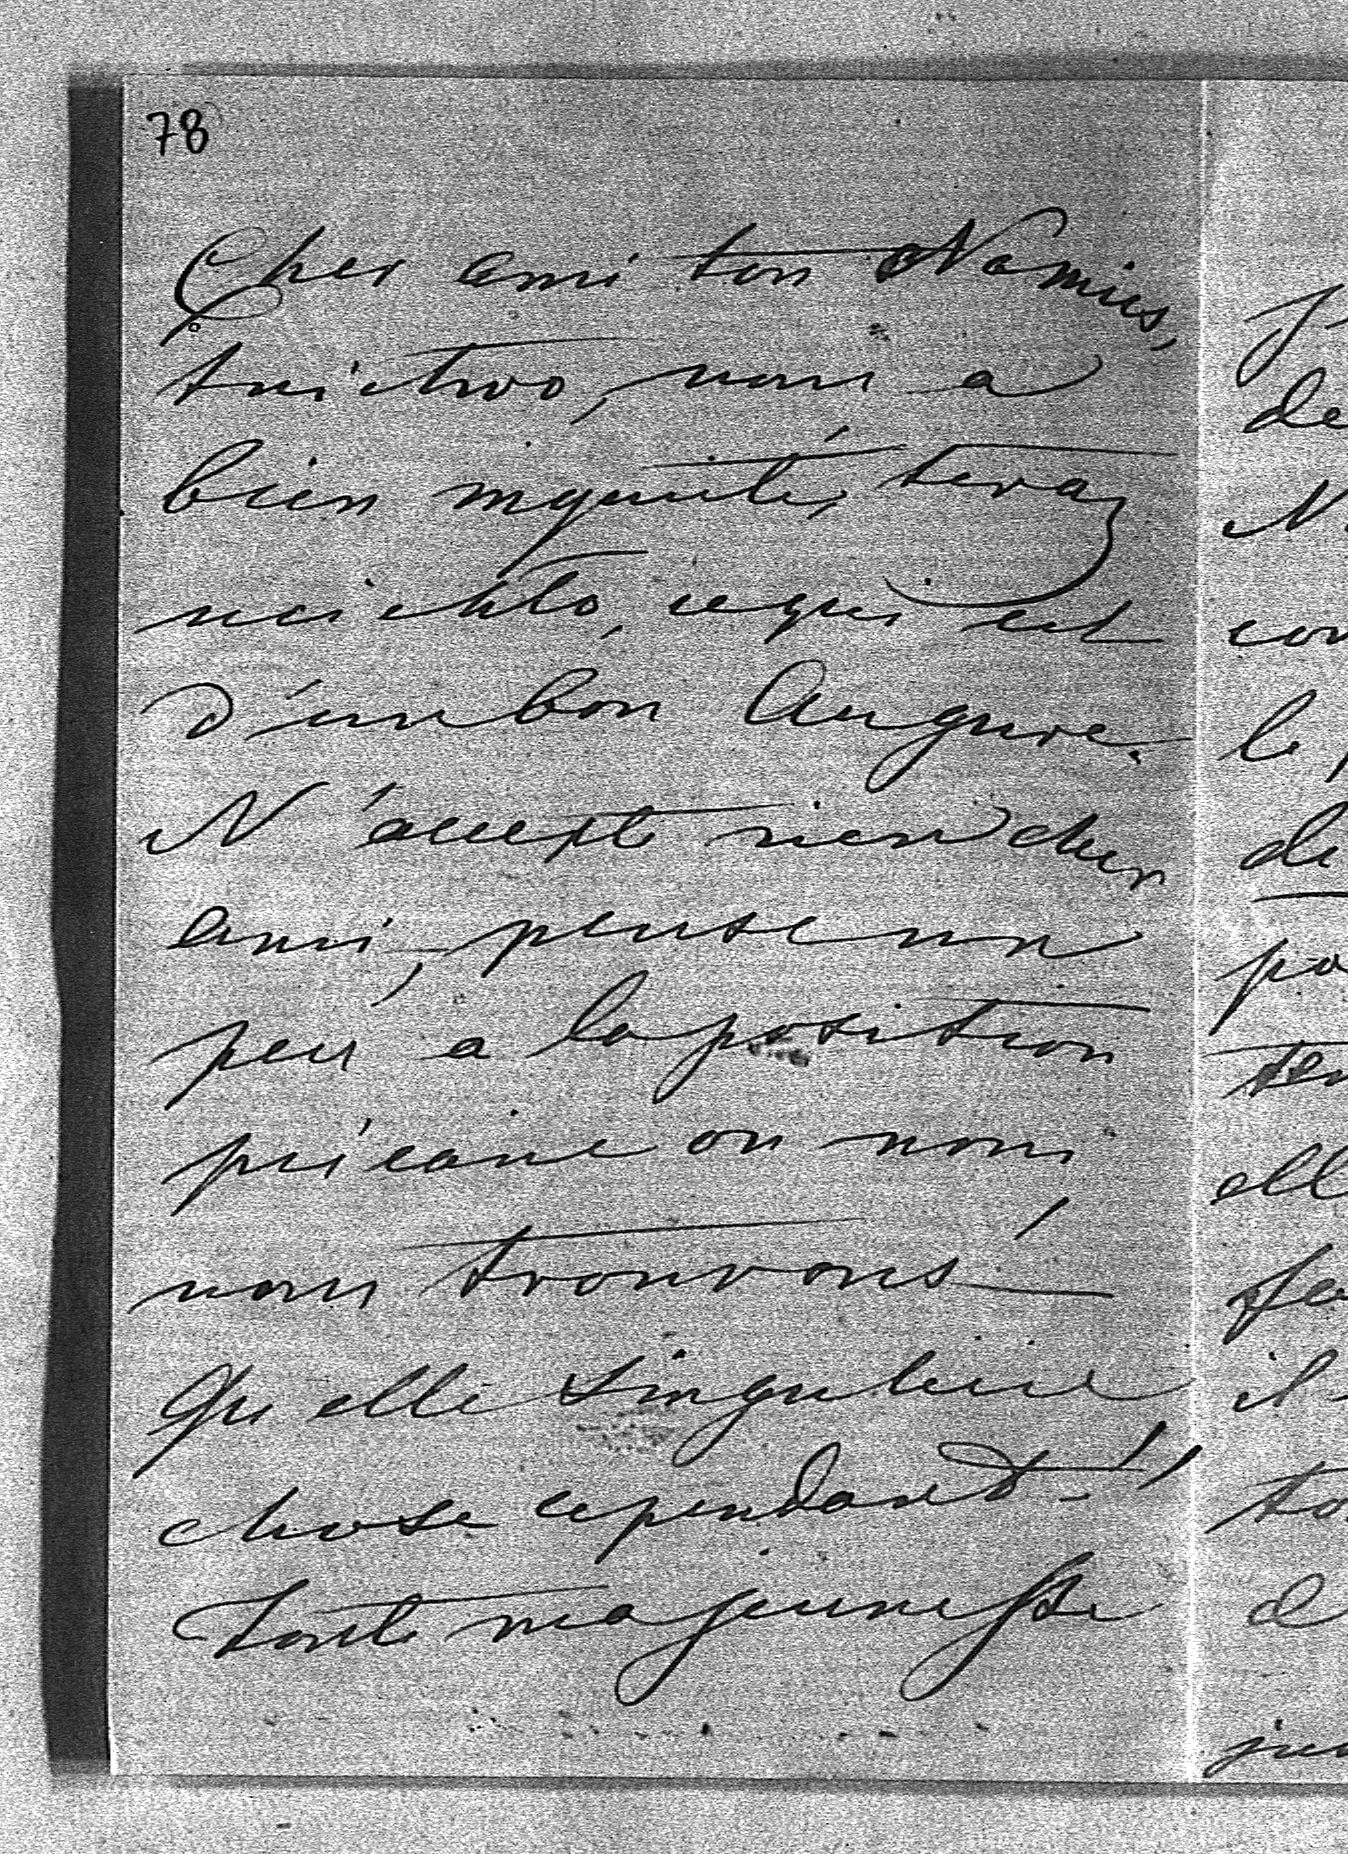 78
Cher ami ton Namies,
tnictwo, nous a
bien inquieté, teraz
ucichło, ce qui est
d'un bon Augure.
N'accepte rien cher
ami, pense un
peu a la position
précaire ou nous
nous trouvons!
Quelle singuliere
chose cependant!!
Toute ma jeunesse
de
co
le
de
po
ten
ell
fe
il
to
d